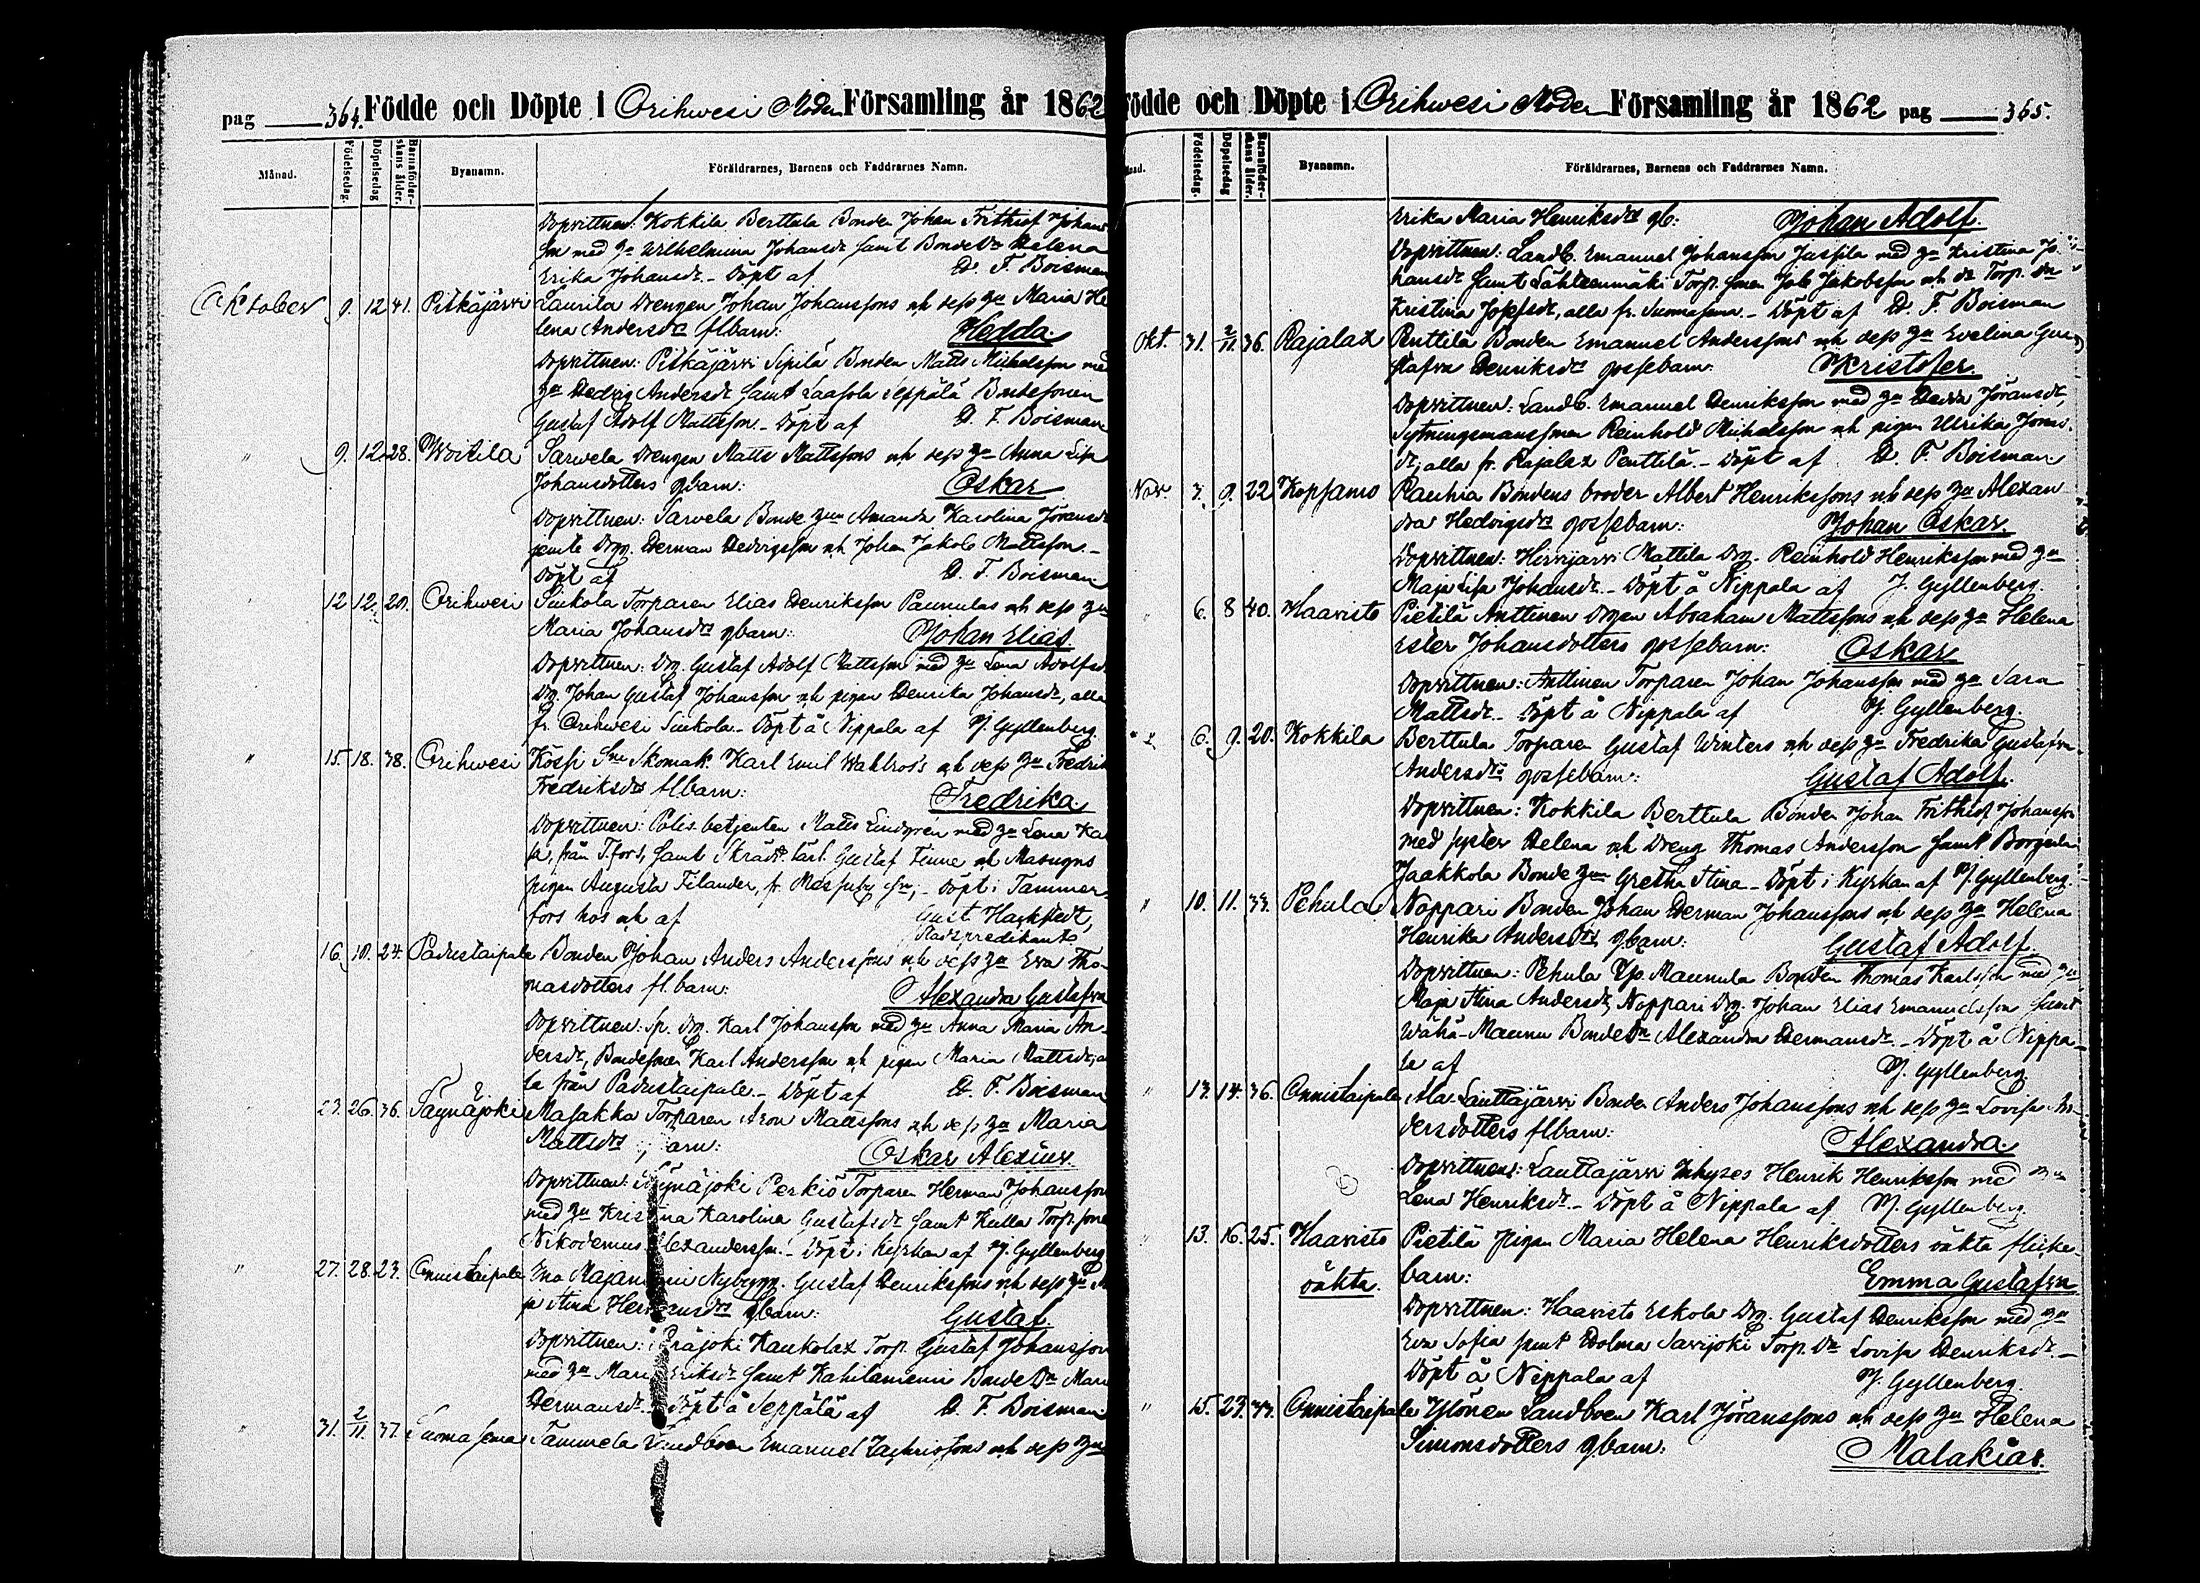 pag 364. Födde och Döpte i Orihwesi Moder Församling år 1862
Månad. Födelsedag. Döpelsedag Barnaföderskans ålder. Byanamn. Föräldrarnes, Barnens och Faddrarnes Namn.
Dopvittnen: Kokkila Berttula Bonden Johan Frithiof Johans
son med hu Wilhelmina Johansdr samt Bonde Dr Helena
Erika Johansdr. Döpt af D. F. Boisman
Oktober 9. 12 41. Pitkäjärvi Laurila Drengen Johan Johanssons och dess hu Maria He
lena Andersdrs flbarn: Hedda.
Dopvittnen: Pitkäjärvi Sipilä Bonden Matts Michelsson med
hu Hedvig Andersdr samt Laasola Seppälä Bondesonen
Gustaf Adolf Mattsson. Döpt af D. F. Boisman
" 9. 12. 28. Woitila Sarwela Drengen Matts Mattssons och dess hu Anna Lisa
Johansdotters gbarn: Oskar
Dopvittnen: Sarvela Bonde hun Amanda Karolina Jöransdr
jemte Drg. Herman Hedvigsson och Johan Jakob Mattsson.
Döpt af D. F. Boisman
12 12. 20. Orihwesi Siukola Torparen Elias Henriksson Paunulas och dess hu
Maria Johansdrs gbarn: Johan Elias
Dopvittnen: Drg. Gustaf Adolf Mattsson med hu Lena Adolfsdr
Drg. Johan Gustaf Johansson och pigan Henrika Johansdr, alla
fr. Orihwesi Siukola. Döpt å Nippala af J. Gyllenberg.
" 15. 18. 38. Orihwesi Skomak. Karl Emil Wahlroos och dess hu Fredrika
Fredriksdrs flbarn: Fredrika.
Dopvittnen: Polis betjenten Matts Lindgren med hu Lena Kai
sa, från T.fors, samt Gustaf Finne och Masugns
pigan Augusta Filander, fr. Messuby Döpt i Tammer-
fors hos och af Gust. Hackstedt,
Stadspredikant.
16. 10. 24. Padustaipale Bonden Johan Anders Anderssons och dess hu Eva Tho-
masdotters fl.barn: Alexandra Gustafva
Dopvittnen: Sp. Drg. Karl Johansson med hu Anna Maria An-
dersdr, Bondesonen Karl Andersson och pigan Maria Mattsdr, al
la från Padustaipale. Döpt af D. F. Boisman
23. 26. 36. Säynäjoki Masakka Torparen Aron Mattssons och dess hu Maria
Mattsdrs barn: Oskar Alexius.
Dopvittnen: Säynäjoki Perkiö Torparen Herman Johansson
med hu Kristina Karolina Gustafsdr samt Kulla Torp.sonen
Nikodemus Alexandersson. Döpt i Kyrkan af J. Gyllenberg
" 27. 28. 23. Onnistaipale Eno Rajaniemi Nybygg. Gustaf Henrikssons och dess hu Ma
ja Stina Hermansdrs gbarn: Gustaf.
Dopvittnen: Kaukolax Torp. Gustaf Johansson
med hu Maria Eriksdr samt Kahilaniemi Bonde Dr Maria
Hermansdr. Döpt å Seppälä af D. F. Boisman
" 31. 2/11 37. Suomasema Tammela Landboen Emanuel Zachrissons och dess hu
Födde och Döpte i Orihwesi Moder Församling år 1862 pag 365.
Födelsedag. Döpelsedag Barnaföderskans ålder. Byanamn. Föräldrarnes, Barnens och Faddrarnes Namn.
Erika Maria Henriksdrs gb: Johan Adolf.
Dopvittnen: Landb. Emanuel Johansson Jussila med hu Kristina Jo-
hansdr samt Lähteenmäki Torp. sonen Job Jakobsson och dr Torp. Dr
Kristina Josefsdr, alla fr. Suomasema. Döpt af D. F. Boisman
Okt. 31. 2/11. 36. Rajalax Penttilä Bonden Emanuel Anderssons och dess hu Evelina Gus-
tafva Henriksdrs gossebarn: Kristofer.
Dopvittnen: Landb. Emanuel Henriksson med hu Hedda Jöransdr,
Sytningsmanssonen Reinhold Michelsson och pigan Ulrika Jonas
dr, alla fr. Rajalax Penttilä. Döpt af D. F. Boisman.
Nov. 3. 9. 22 Kopsamo Rauhia Bondens broder Albert Henrikssons och dess hu Alexan
dra Hedvigsdrs gossebarn: Johan Oskar.
Dopvittnen: Hirvijärvi Mattila Drg. Reinhold Henriksson med hu
Maja Lisa Johansdr. Döpt å Nippala af J. Gyllenberg.
" 6. 8 40. Haavisto Pietilä Anttinen Drgen Abraham Mattssons och dess hu Helena
Ester Johansdotters gossebarn: Oskar.
Dopvittnen: Anttinen Torparen Johan Johansson med hu Sara
Mattsdr. Döpt å Nippala af J. Gyllenberg.
6. 9. 20. Kokkila Berttula Torparen Gustaf Winters och dess hu Fredrika Gustafva
Andersdrs gossebarn: Gustaf Adolf.
Dopvittnen: Kokkila Berttula Bonden Johan Frithiof Johansson
med syster Helena och Dreng Thomas Andersson samt Borgenla
Jaakkola Bonde hun Gretha Stina. Döpt i Kyrkan af J. Gyllenberg.
" 10. 11. 33. Pehula Noppari Bonden Johan Herman Johanssons och dess hu Helena
Henrika Andersdrs gbarn: Gustaf Adolf.
Dopvittnen: Pehula Yp. Maunula Bonden Thomas Karlsson med hu
Maja Stina Andersdr, Noppari Drg. Johan Elias Emanuelsson samt
Wähä-Maunu Bonde Dr Alexandra Hermansdr. Döpt å Nippa-
la af J. Gyllenberg.
" 13. 14. 36. Onnistaipale Ala Lauttajärvi Bonden Anders Johanssons och dess hu Lovisa An-
dersdotters flbarn: Alexandra.
Dopvittnen: Lauttajärvi Inhyses Henrik Henriksson med hu
Lena Henriksdr. Döpt å Nippala af J. Gyllenberg.
" 13. 16. 25. Haavisto Pietilä pigan Maria Helena Henriksdotters oäkta flicke-
oäkta. barn: Emma Gustafva
Dopvittnen: Haavisto Eskola Drg. Gustaf Henriksson med hu
Eva Sofia samt Holma Savijoki Torp. Dr Lovisa Henriksdr.
Döpt å Nippala af J. Gyllenberg.
" 15. 23. 33. Onnistaipale Ylönen Landboen Karl Jöranssons och dess hu Helena
Simonsdotters gbarn: Malakias.